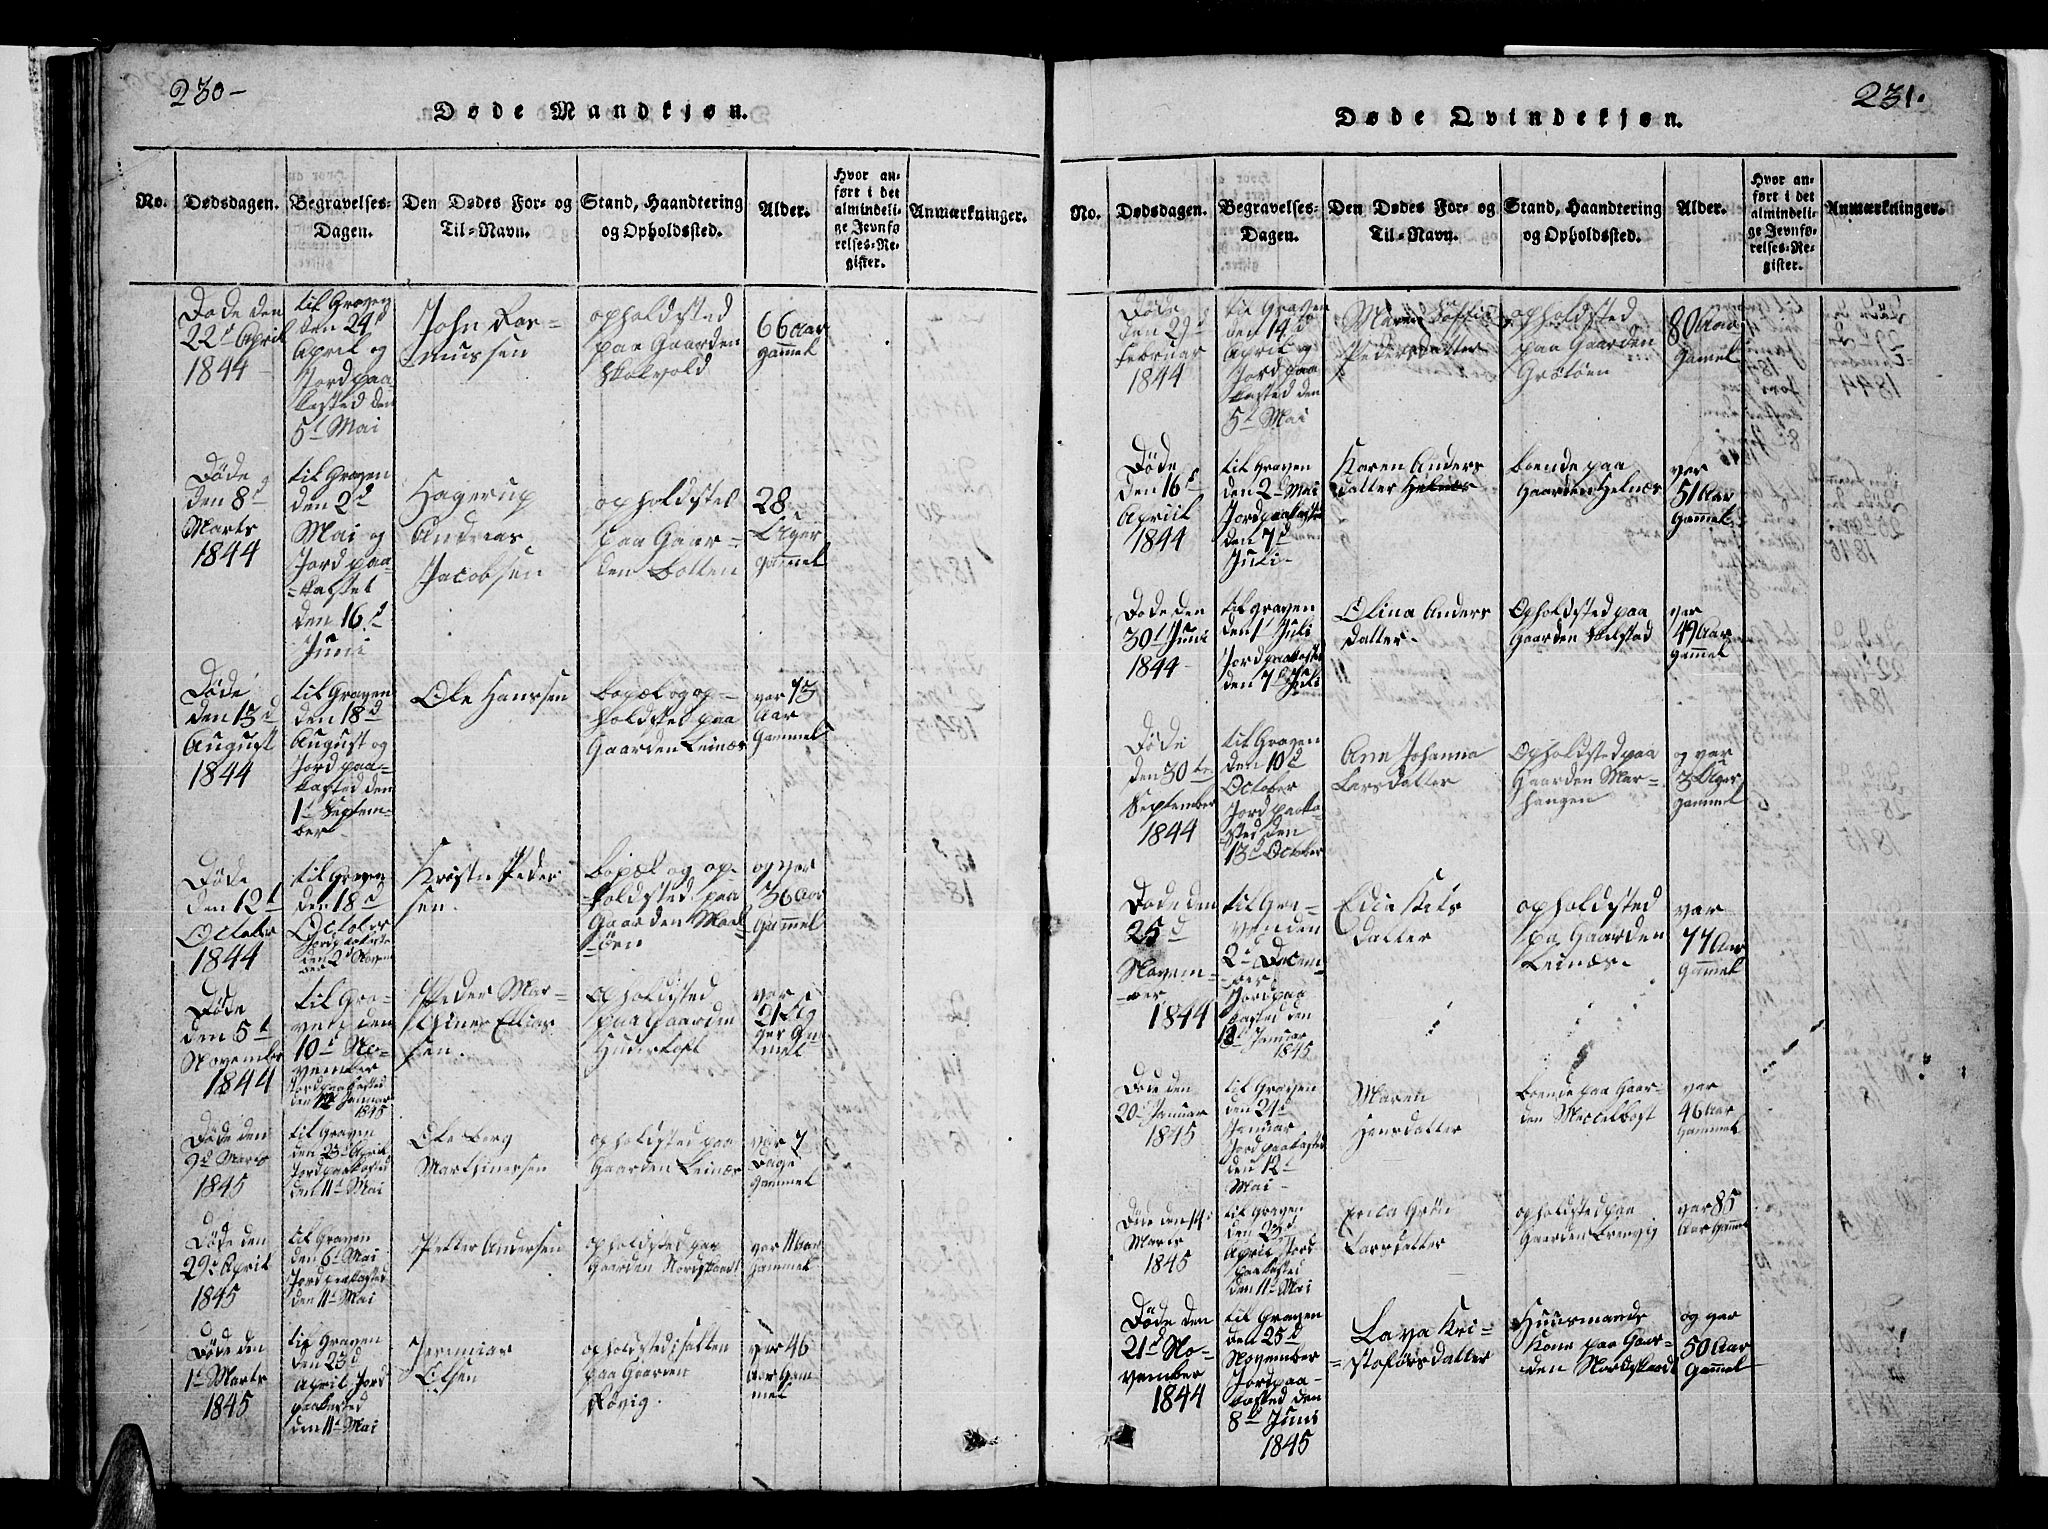 230-
Døde Mandkjøn.
No.
Dødsdagen.
Begravelses-
Dagen.
Den Dødes For- og
Til-Navn.
Stand, Haandtering
og Opholdssted.
Alder.
Hvor an-
ført i det
almindeli-
ge Jevnfø-
relses-Re-
gister.
Anmærkninger.
Døde den
22d April
1844
til Graven
den 24d
April og
Jord paa-
kasted den
5t Mai
John Ras-
mussen
opholdsted
paa Gaarden
66 Aar
gammel
Døde
den 8d
Marts
1844
til Graven
den 2d
Mai og
Jord paa-
kastet
den 16d
Juni
Hagerup
Andreas
Jacobsen
opholdsted
paa Gaar-
den Botten
28
Uger
gammel
Døde
den 13d
August
1844
til Graven
den 18d
August og
Jord paa-
kasted den
1t Septem-
ber
Ole Hanssen
bopæl og op-
holdsted paa
Gaarden Leinæs
var 73
Aar
Gammel
Døde
den 12t
October
1844
til Graven
den 18d
October
Jord paakaste
den 2d Novem
ber
Kristen Peder
sen.
bopæl og op-
holdsted paa
Gaarden
og var
36 Aar
gammel
Døde
den 5t
November
1844
til Gra-
ven den
10d No-
vember
Jord paakasted
den 12 Januar
1845
Peder Mar-
Elias
sen.
opholdsted
paa Gaarden
var
21 Ug
er Ga
mel
Døde den
9d Marts
1845
til Graven
den 23d April
Jord paakasted
den 11t Mai
Ole Berg
Marthinersen
opholdsted paa
Gaarden Leinæs
var 7
Dage
Gammel
Døde den
29d April
1845
til Graven
den 6t Mai
Jord paakasted
den 11t Mai
Petter Andersen
opholdsted paa
Gaarden Nordskaadt
var 11 Aar
Gammel
Døde den
1t Marts
1845
til Graven
den 23d
April Jord
paakasted
den 11t Mai
Jermias
Olsen
opholdsted i Salten
paa Gaarden
Røvig.
var 46
Aar Gam
mel
231.
Døde Qvindekjøn.
No.
Dødsdagen.
Begravelses-
Dagen.
Den Dødes For- og
Til-Navn.
Stand, Haandtering
og Opholdssted.
Alder.
Hvor an-
ført i det
almindeli-
ge Jevnfø-
relses-Re-
gister.
Anmærkninger.
Døde
den 29d
Februar
1844
til Graven
den 14d
April og
Jord paa
kasted den
5t Mai
Maren Soffia
Pedersdatter
opholdsted
paa Gaarden
Grøtøen
80 Aar
Gamel
Døde
den 16d
April
1844
til Graven
den 2d Mai
Jord paakaste
den 7d
Juli-
Karen Anders
datter Helnæs
boende paa
Gaarden Helnæs
var
51 Aar
Gammel
Døde den
30t Juni
1844
til Graven
den 1t Juli
Jord paakasted
den 7d Juli
Olina Anders
datter-
Opholdsted paa
Gaarden
var
49 Aar
Gammel
Døde
den 30te
September
1844
til Graven
den 10d
October
Jord paaka-
sted den
13d October
Ane Johanna
Larsdatter
Opholdsted paa
Gaarden Mar-
hangen
og var
3 Uger
Gammel
Døde den
25d
Novem-
ber
1844
til Gra-
ven den
2d Decem-
ber
Jord paa
kasted den
12t Januar
1845
Datter
opholdsted
pa Gaarden
Leinæs-
var
77 Aar
gammel
Døde den
20d Januar
1845
til Graven
den 21d
Januar
Jord paakasted
den 12t
Mai-
Maren
Hansdatter
boende paa Gaar
den
var
46 Aar
Gammel
Døde den 14d
Marts
1845
til Graven
den 23d
April Jord
paakasted
den 11t Mai
Larsdatter
opholdsted paa
Gaarden Brenvig
var 85
Aar gammel
Døde den
21d No-
vember
1844
til Graven
den 25d
November
Jord paa-
kasted den
8d Juni
1845
Lava Kri-
stofersdatter
Huusmands
Kone paa Gaar-
den Nordskaadt
og var
50 Aar
Gammel